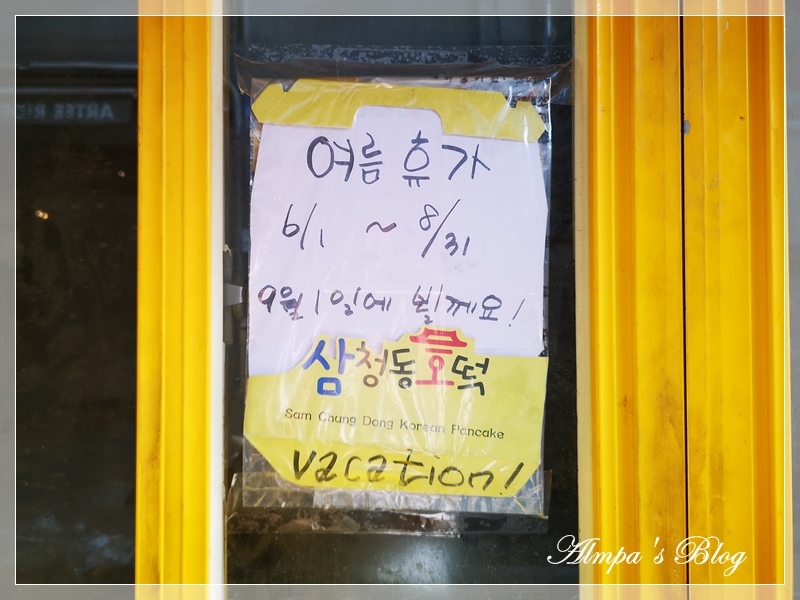 여름 휴가
6/1 ~ 8/31
9월 1일에 뵐께요!
삼청동호떡
Sam Chung Dong Korean Pancake
vacation!
Almpa's Blog